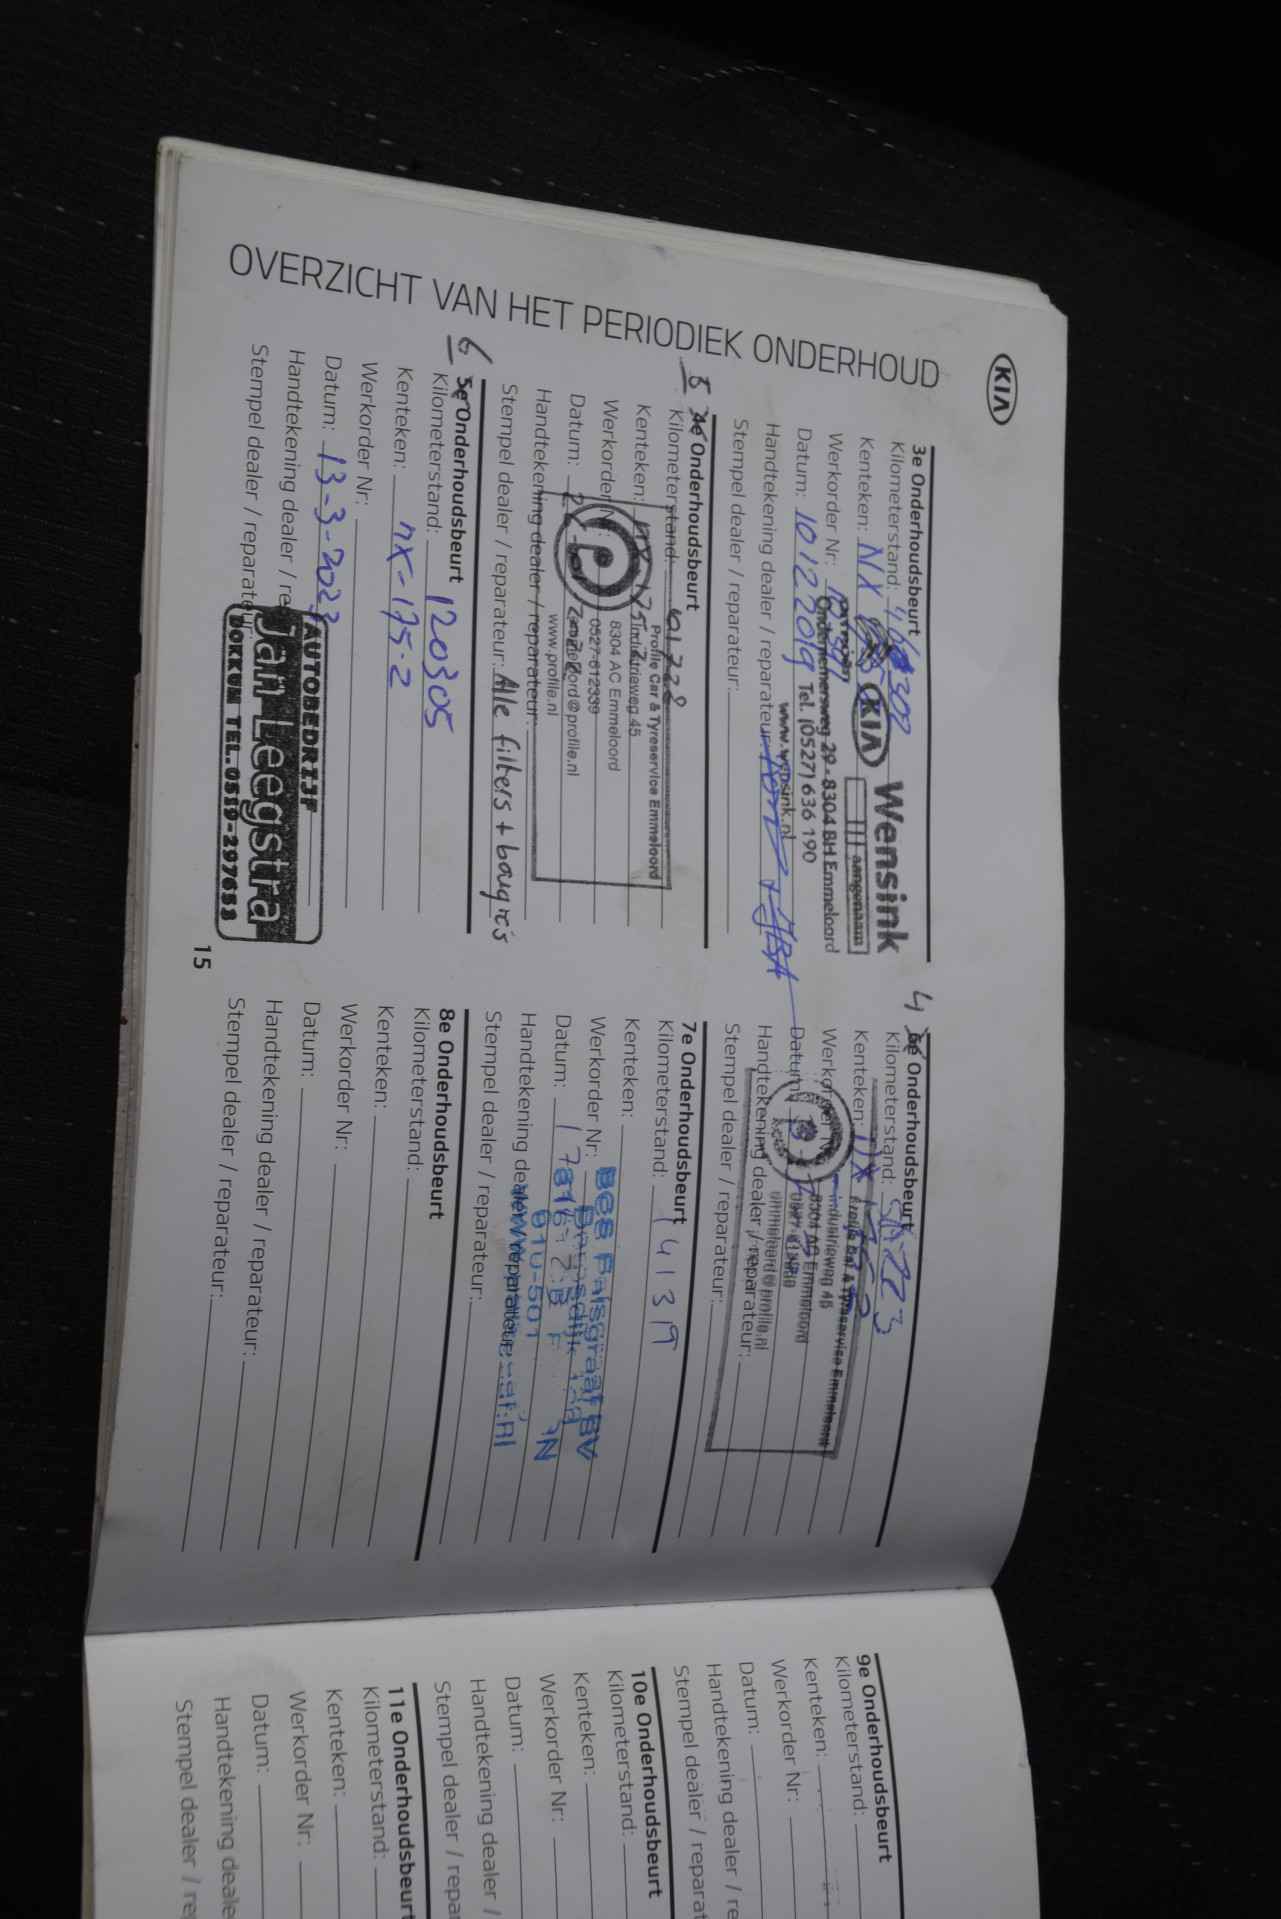 KIA
OVERZICHT VAN HET PERIODIEK ONDERHOUD
3e Onderhoudsbeurt
Kilometerstand:
Kenteken: NX
Werkorder Nr:
Datum: 10 12 2019
Handtekening dealer / reparateur:
Stempel dealer / reparateur:
KIA Wensink
aangenaam
Ondernemersweg 29 - 8304 BH Emmeloord
Tel. (0527) 636 190
www.wensink.nl
5 4e Onderhoudsbeurt
Kilometerstand:
Kenteken:
Werkorder
Datum:
Handtekening dealer / reparateur:
Stempel dealer / reparateur: Alle filters + bougie's
Profile Car & Tyreservice Emmeloord
Industrieweg 45
8304 AC Emmeloord
0527-612339
emmeloord@profile.nl
www.profile.nl
6 5e Onderhoudsbeurt
Kilometerstand: 120305
Kenteken: nX-175-2
Werkorder Nr:
Datum: 13-3-2023
Handtekening dealer / re
Stempel dealer / reparateur:
AUTOBEDRIJF
Jan Leegstra
DOKKUM TEL. 0519-297653
15
4 6e Onderhoudsbeurt
Kilometerstand:
Kenteken: NX
Werkorder Nr:
Datum:
Handtekening dealer / reparateur:
Stempel dealer / reparateur:
Profile Car & Tyreservice Emmeloord
Industrieweg 45
8304 AC Emmeloord
emmeloord@profile.nl
7e Onderhoudsbeurt
Kilometerstand: 141319
Kenteken:
Werkorder Nr:
Datum:
Handtekening dealer / reparateur:
Stempel dealer / reparateur:
8e Onderhoudsbeurt
Kilometerstand:
Kenteken:
Werkorder Nr:
Datum:
Handtekening dealer / reparateur:
Stempel dealer / reparateur:
9e Onderhoudsbeurt
Kilometerstand:
Kenteken:
Werkorder Nr:
Datum:
Handtekening dealer / re
Stempel dealer / reparat
10e Onderhoudsbeurt
Kilometerstand:
Kenteken:
Werkorder Nr:
Datum:
Handtekening dealer /
Stempel dealer / repa
11e Onderhoudsbeurt
Kilometerstand:
Kenteken:
Werkorder Nr:
Datum:
Handtekening deale
Stempel dealer / re